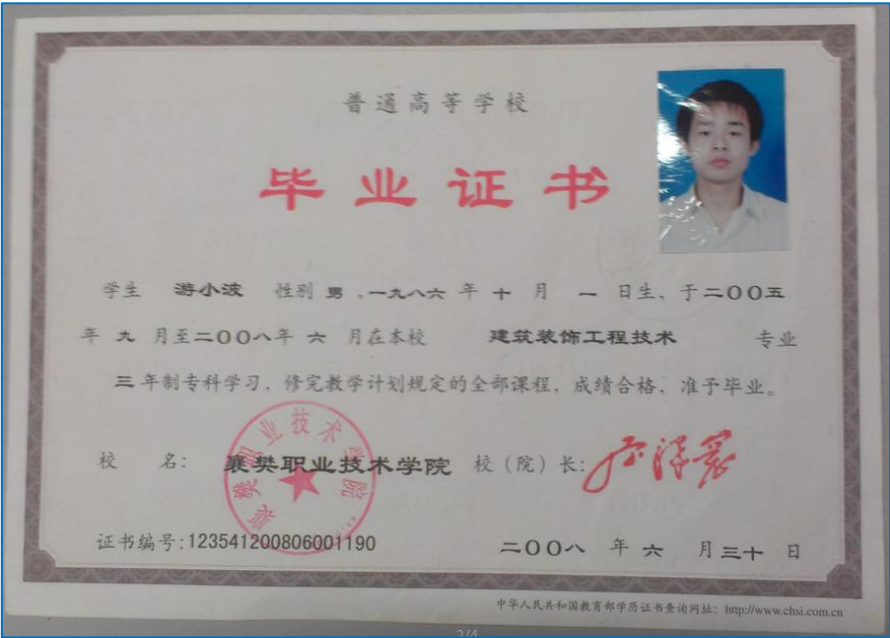 普通高等学校
毕业证书
学生 游小波 性别 男 ,一九八六 年 十 月 一 日生, 于二00五
年 九 月至二00八年 六 月在本校 建筑装饰工程技术 专业
三 年制专科学习, 修完教学计划规定的全部课程, 成绩合格, 准予毕业。
校 名: 襄樊职业技术学院 校(院)长:
襄樊职业技术学院
证书编号:123541200806001190 二00八 年 六 月三十 日
中华人民共和国教育部学历证书查询网址: http://www.chsi.com.cn
2/4